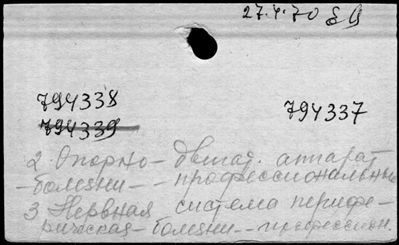 27.4.70
794338
794339
794337
2. Опорно-двигат. аппарат
-болезни--профессиональные
3 Нервная система перифе-
рическая-болезни--профессион.